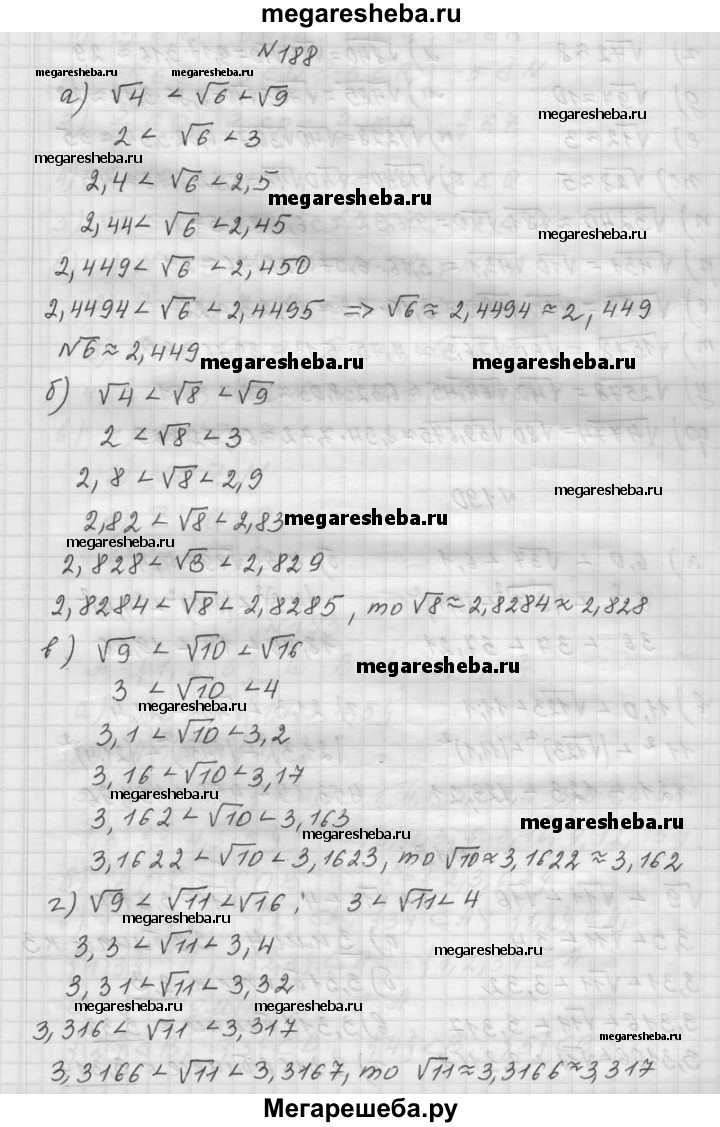 megaresheba.ru
N188
megaresheba.ru megaresheba.ru
а) √4 < √6 < √9
megaresheba.ru
2 < √6 < 3
megaresheba.ru
2,4 < √6 < 2,5
megaresheba.ru
2,44 < √6 < 2,45
megaresheba.ru
2,449 < √6 < 2,450
2,4494 < √6 < 2,4495 => √6 ≈ 2,4494 ≈ 2,449
√6 ≈ 2,449
megaresheba.ru megaresheba.ru
б) √4 < √8 < √9
2 < √8 < 3
2,8 < √8 < 2,9
megaresheba.ru
2,82 < √8 < 2,83
megaresheba.ru
megaresheba.ru
2,828 < √8 < 2,829
2,8284 < √8 < 2,8285, то √8 ≈ 2,8284 ≈ 2,828
в) √9 < √10 < √16
megaresheba.ru
3 < √10 < 4
megaresheba.ru
3,1 < √10 < 3,2
3,16 < √10 < 3,17
megaresheba.ru
3,162 < √10 < 3,163
megaresheba.ru
megaresheba.ru
3,1622 < √10 < 3,1623, то √10 ≈ 3,1622 ≈ 3,162
г) √9 < √11 < √16; 3 < √11 < 4
megaresheba.ru
3,3 < √11 < 3,4
megaresheba.ru
3,31 < √11 < 3,32
megaresheba.ru megaresheba.ru
3,316 < √11 < 3,317
megaresheba.ru
3,3166 < √11 < 3,3167, то √11 ≈ 3,3166 ≈ 3,317
Мегарешеба.ру